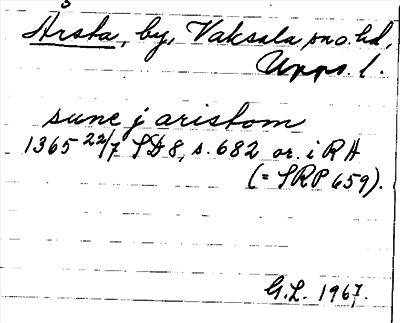 Årsta, by, Vaksala sn o. hd,
Upps. l.
sune j aristom
1365 22/7 SD 8, s. 682 or. i RA
(= SRP 659).
G.L. 1967.